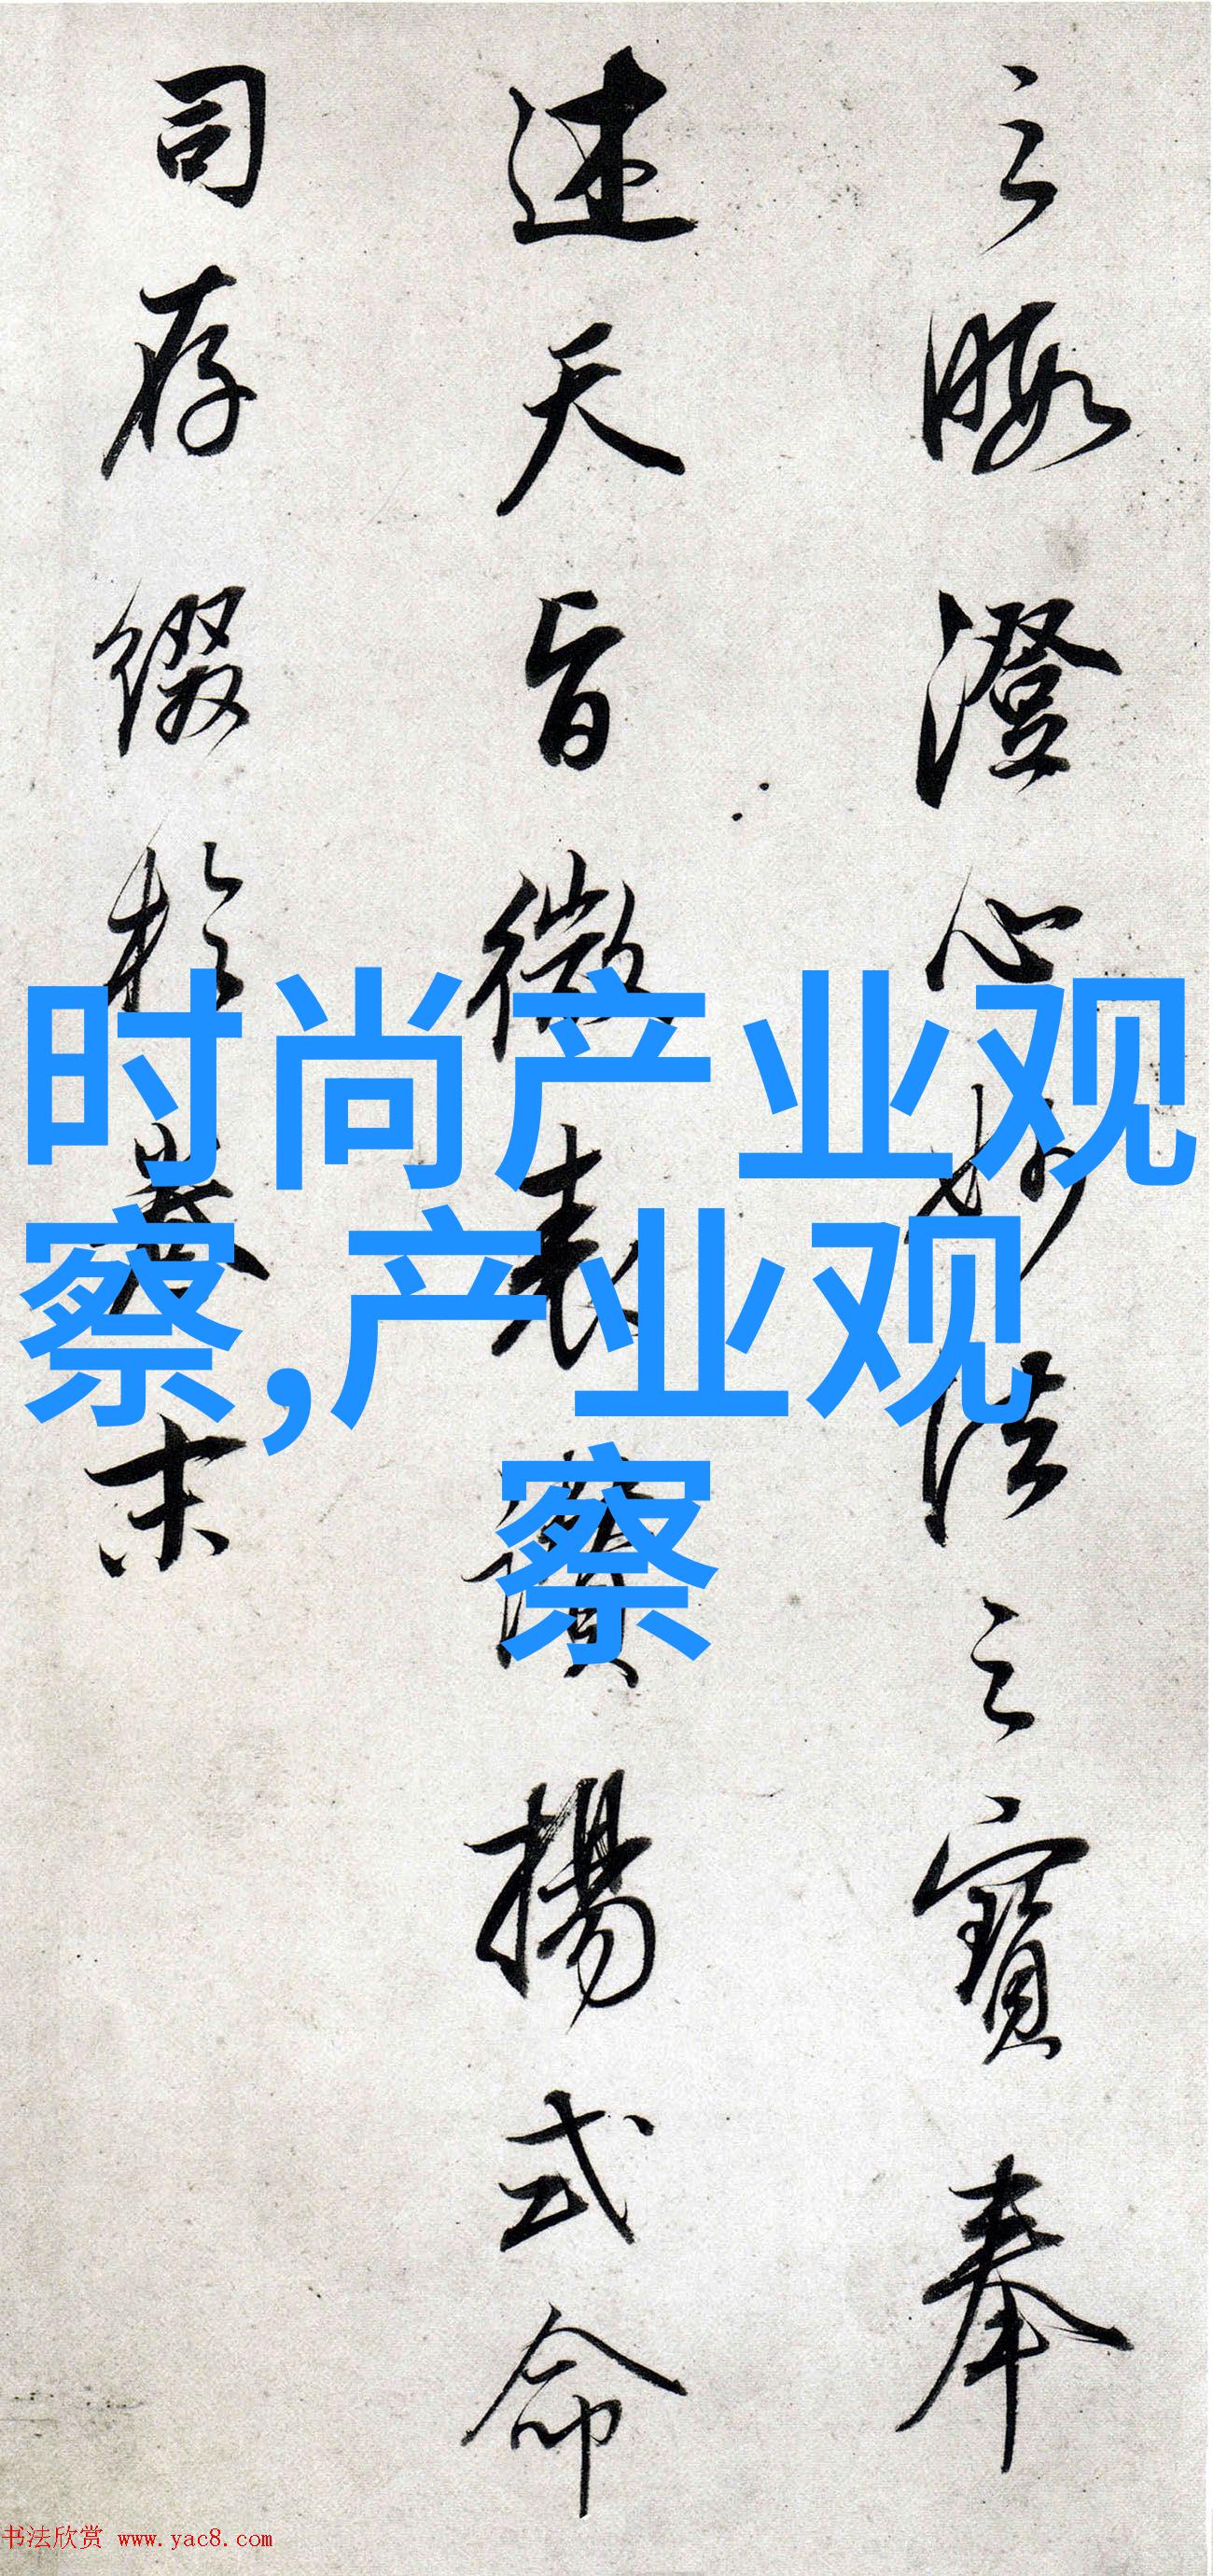 之暇澄心妙法之宝奉
述天旨微表讚揚式命
司存缀於卷末
时尚产业观
察,产业观
察
书法欣赏 www.yac8.com